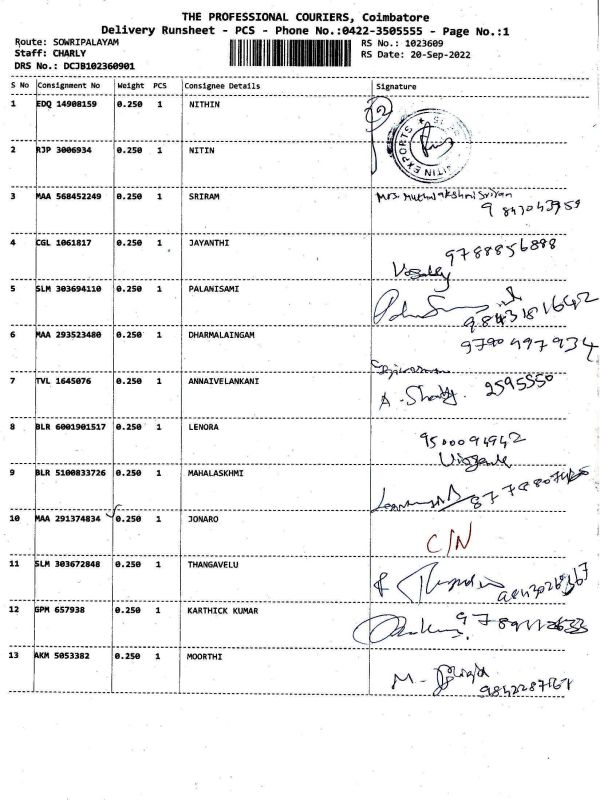 THE PROFESSIONAL COURIERS, Coimbatore
Delivery Runsheet - PCS - Phone No.:0422-3505555 - Page No.:1
Route: SOWRIPALAYAM
Staff: CHARLY
DRS No.: DCJB102360901
RS No.: 1023609
RS Date: 20-Sep-2022
S No Consignment No Weight PCS Consignee Details Signature
1 EDQ 14908159 0.250 1 NITHIN 2
2 RJP 3006934 0.250 1 NITIN
3 MAA 568452249 0.250 1 SRIRAM Mrs. Muthulakshmi Sriram
4 CGL 1061817 0.250 1 JAYANTHI 9788856888
5 SLM 303694110 0.250 1 PALANISAMI 9843181642
6 MAA 293523480 0.250 1 DHARMALAINGAM 9790497934
7 TVL 1645076 0.250 1 ANNAIVELANKANI A. 2595550
8 BLR 6001901517 0.250 1 LENORA 9500094942
9 BLR 5100833726 0.250 1 MAHALASKHMI
10 MAA 291374834 0.250 1 JONARO C/N
11 SLM 303672848 0.250 1 THANGAVELU
12 GPM 657938 0.250 1 KARTHICK KUMAR
13 AKM 5053382 0.250 1 MOORTHI M.